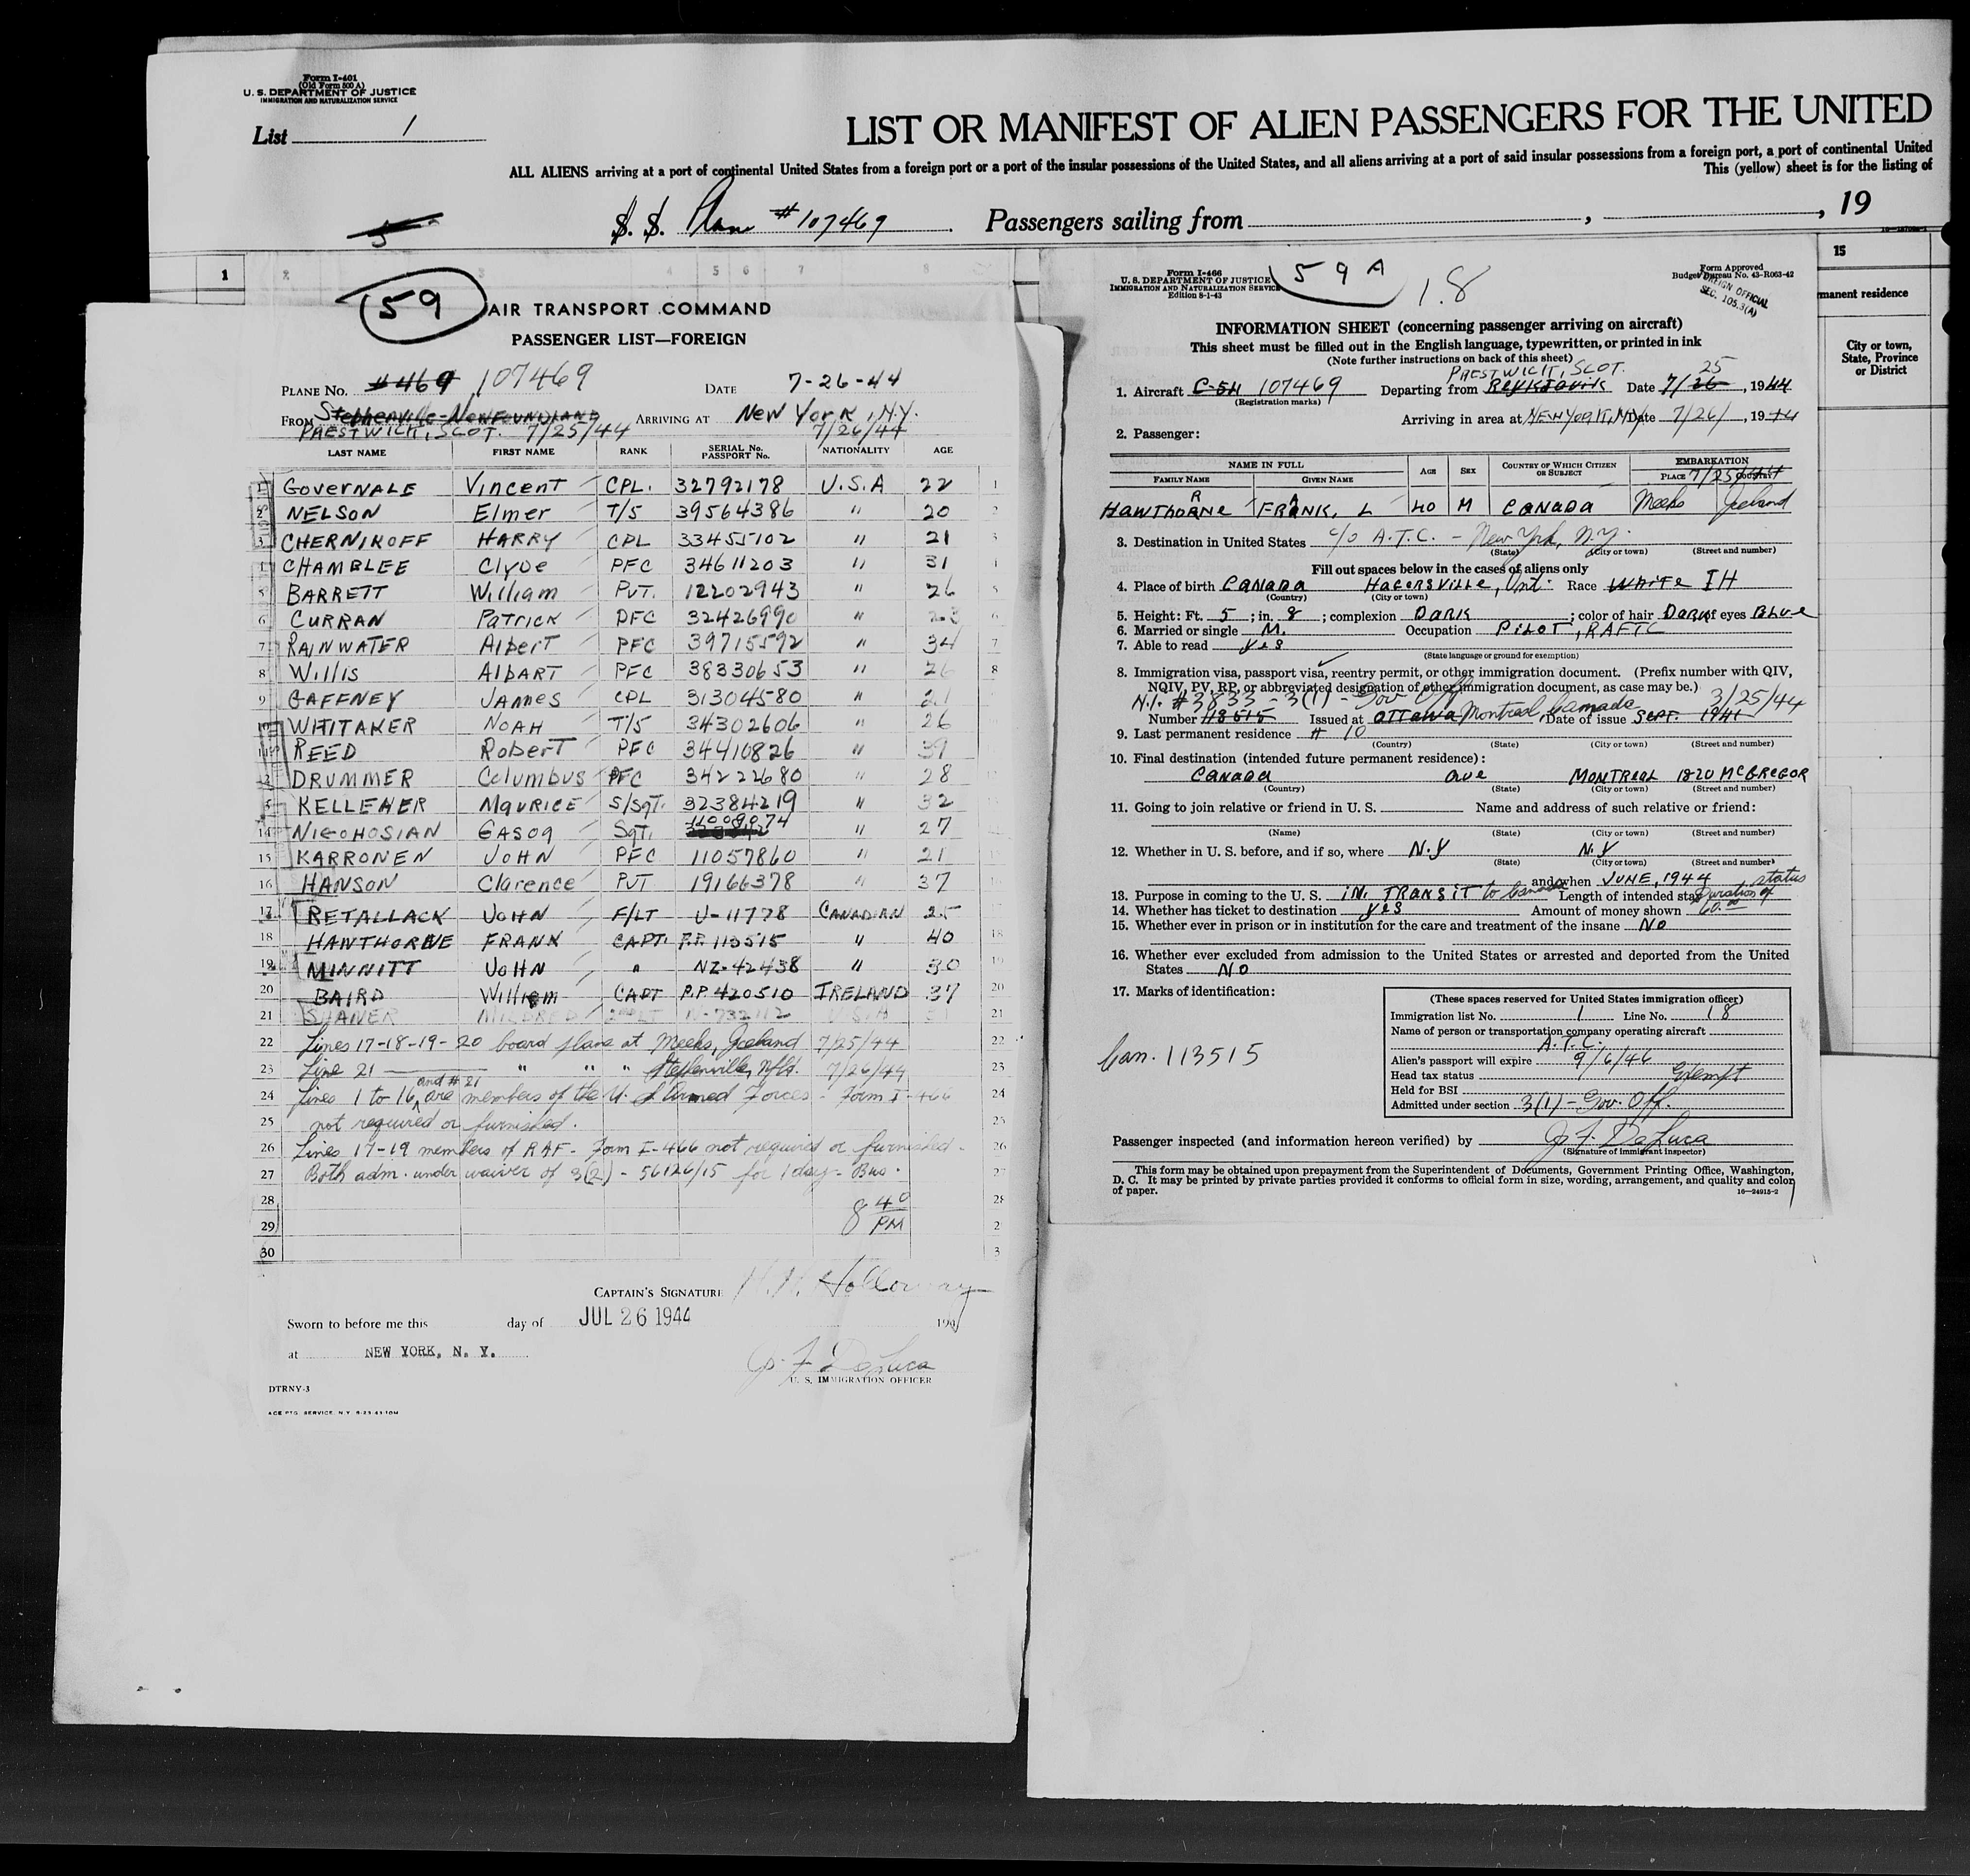 Form I-401
(Old Form 500 A)
U. S. DEPARTMENT OF JUSTICE
IMMIGRATION AND NATURALIZATION SERVICE
List 1
LIST OR MANIFEST OF ALIEN PASSENGERS FOR THE UNITED
ALL ALIENS arriving at a port of continental United States from a foreign port or a port of the insular possessions of the United States, and all aliens arriving at a port of said insular possessions from a foreign port, a port of continental United
This (yellow) sheet is for the listing of
S. S. Plane #107469 Passengers sailing from , , 19
1 2 3 4 5 6 7 8
15
manent residence
City or town,
State, Province
or District
59
AIR TRANSPORT COMMAND
PASSENGER LIST—FOREIGN
PLANE NO. #469 107469 DATE 7-26-44
FROM Stephenville-Newfoundland ARRIVING AT New York, N.Y.
PRESTWICK, SCOT. 7/25/44 7/26/44
LAST NAME FIRST NAME RANK SERIAL No. PASSPORT No. NATIONALITY AGE
1 GOVERNALE Vincent CPL. 32792178 U.S.A 22 1
2 NELSON Elmer T/5 39564386 " 20 2
3 CHERNIKOFF HARRY CPL 33455102 " 21 3
4 CHAMBLEE Clyde PFC 34611203 " 31
5 BARRETT William PVT. 12202943 " 26 5
6 CURRAN PATRICK PFC 32426990 " 23 6
7 RAINWATER Albert PFC 39715592 " 34 7
8 Willis AlbART PFC 38330653 " 26 8
9 GAFFNEY JAMES CPL 31304580 " 21
10 WHITAKER NOAH T/5 34302606 " 26
11 REED Robert PFC 34410826 " 39
12 DRUMMER Columbus PFC 34222680 " 28
13 KELLEHER MAURICE S/Sgt. 32384219 " 32
14 NIGOHOSIAN GASOG Sgt. 11009074 " 27
15 KARRONEN JOHN PFC 11057860 " 21
16 HANSON Clarence PVT 19166378 " 37
17 RETALLACK JOHN F/LT U-11778 CANADIAN 25
18 HAWTHORNE FRANK CAPT. P.P. 113515 " 40 18
19 MINNITT JOHN " NZ-42438 " 30 19
20 BAIRD William CAPT P.P. 420510 IRELAND 37 20
21 SHANER MILDRED 2nd LT N-732112 U.S.A 31 21
22 Lines 17-18-19-20 board plane at Meeks, Iceland 7/25/44 22
23 Line 21 — " " " Stephenville, Nfld. 7/26/44 23
and #21
24 Lines 1 to 16, are members of the U. S. Armed Forces - Form I-466 24
25 not required or furnished. 25
26 Lines 17-19 members of RAF - Form I-466 not required or furnished - 26
27 Both adm. under waiver of 3(2) - 56126/15 for 1 day - Bus. 27
28
29 8 40 PM
30
CAPTAIN'S SIGNATURE H. H. Holloway
Sworn to before me this day of JUL 26 1944 194
at NEW YORK, N. Y.
J. F. DeLuca
U. S. IMMIGRATION OFFICER
DTRNY-3
ACE PTG. SERVICE, N.Y. 8-23-43-10M
Form I-466
U. S. DEPARTMENT OF JUSTICE
IMMIGRATION AND NATURALIZATION SERVICE
Edition 8-1-43
59A
18
Form Approved
Budget Bureau No. 43-R063-42
FOREIGN OFFICIAL
SEC. 105.3(A)
INFORMATION SHEET (concerning passenger arriving on aircraft)
This sheet must be filled out in the English language, typewritten, or printed in ink
(Note further instructions on back of this sheet)
PRESTWICK, SCOT. 25
1. Aircraft C-54 107469 Departing from Reykjavik Date 7/26, 1944
(Registration marks)
Arriving in area at NEW YORK, NY Date 7/26/, 1944
2. Passenger:
NAME IN FULL AGE SEX COUNTRY OF WHICH CITIZEN OR SUBJECT EMBARKATION
FAMILY NAME GIVEN NAME PLACE 7/25/44
HAWTHORNE FRANK, L 40 M CANADA Meeks Iceland
3. Destination in United States c/o A.T.C. - New York, N.Y.
(State) (City or town) (Street and number)
Fill out spaces below in the cases of aliens only
4. Place of birth CANADA HAGERSVILLE, Ont. Race WHITE IH
(Country) (City or town)
5. Height: Ft. 5; in. 8; complexion DARK; color of hair DARK; eyes BLUE
6. Married or single M. Occupation PILOT, RAFTC
7. Able to read yes
(State language or ground for exemption)
8. Immigration visa, passport visa, reentry permit, or other immigration document. (Prefix number with QIV,
NQIV, PV, RP, or abbreviated designation of other immigration document, as case may be.)
N.I. #3833 - 3(1) - Gov Off. 3/25/44
Number 113515 Issued at OTTAWA Montreal, Canada Date of issue SEPT. 1941
9. Last permanent residence # 10
(Country) (State) (City or town) (Street and number)
10. Final destination (intended future permanent residence):
CANADA Que MONTREAL 1820 McGREGOR
(Country) (State) (City or town) (Street and number)
11. Going to join relative or friend in U. S. Name and address of such relative or friend:
(Name) (State) (City or town) (Street and number)
12. Whether in U. S. before, and if so, where N.Y N.Y
(State) (City or town) (Street and number)
and when JUNE, 1944
13. Purpose in coming to the U. S. IN TRANSIT to Canada Length of intended stay Duration of status
14. Whether has ticket to destination yes Amount of money shown 60.00
15. Whether ever in prison or in institution for the care and treatment of the insane No
16. Whether ever excluded from admission to the United States or arrested and deported from the United
States NO
17. Marks of identification:
Can. 113515
(These spaces reserved for United States immigration officer)
Immigration list No. 1 Line No. 18
Name of person or transportation company operating aircraft
A.T.C.
Alien's passport will expire 9/6/46
Head tax status Exempt
Held for BSI
Admitted under section 3(1) - Gov. Off.
Passenger inspected (and information hereon verified) by J. F. DeLuca
(Signature of immigrant inspector)
This form may be obtained upon prepayment from the Superintendent of Documents, Government Printing Office, Washington,
D. C. It may be printed by private parties provided it conforms to official form in size, wording, arrangement, and quality and color
of paper. 16—24915-2